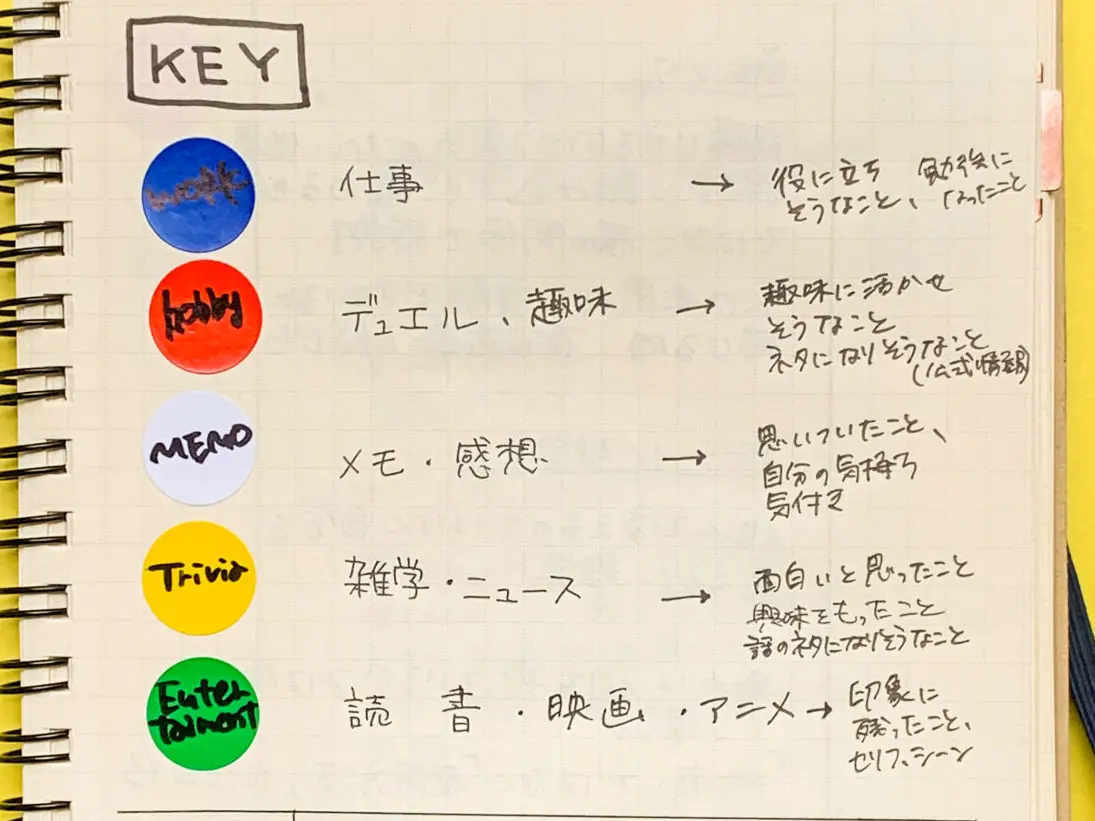 KEY
work 仕事 → 役に立ち 勉強に
そうなこと、なったこと
hobby デュエル、趣味 → 趣味に活かせ
そうなこと
ネタになりそうなこと
(公式情報)
MEMO メモ・感想 → 思いついたこと、
自分の気持ち
気付き
Trivia 雑学・ニュース → 面白いと思ったこと
興味をもったこと
話のネタになりそうなこと
Enter-
tainment 読書・映画・アニメ → 印象に
残ったこと、
セリフ、シーン